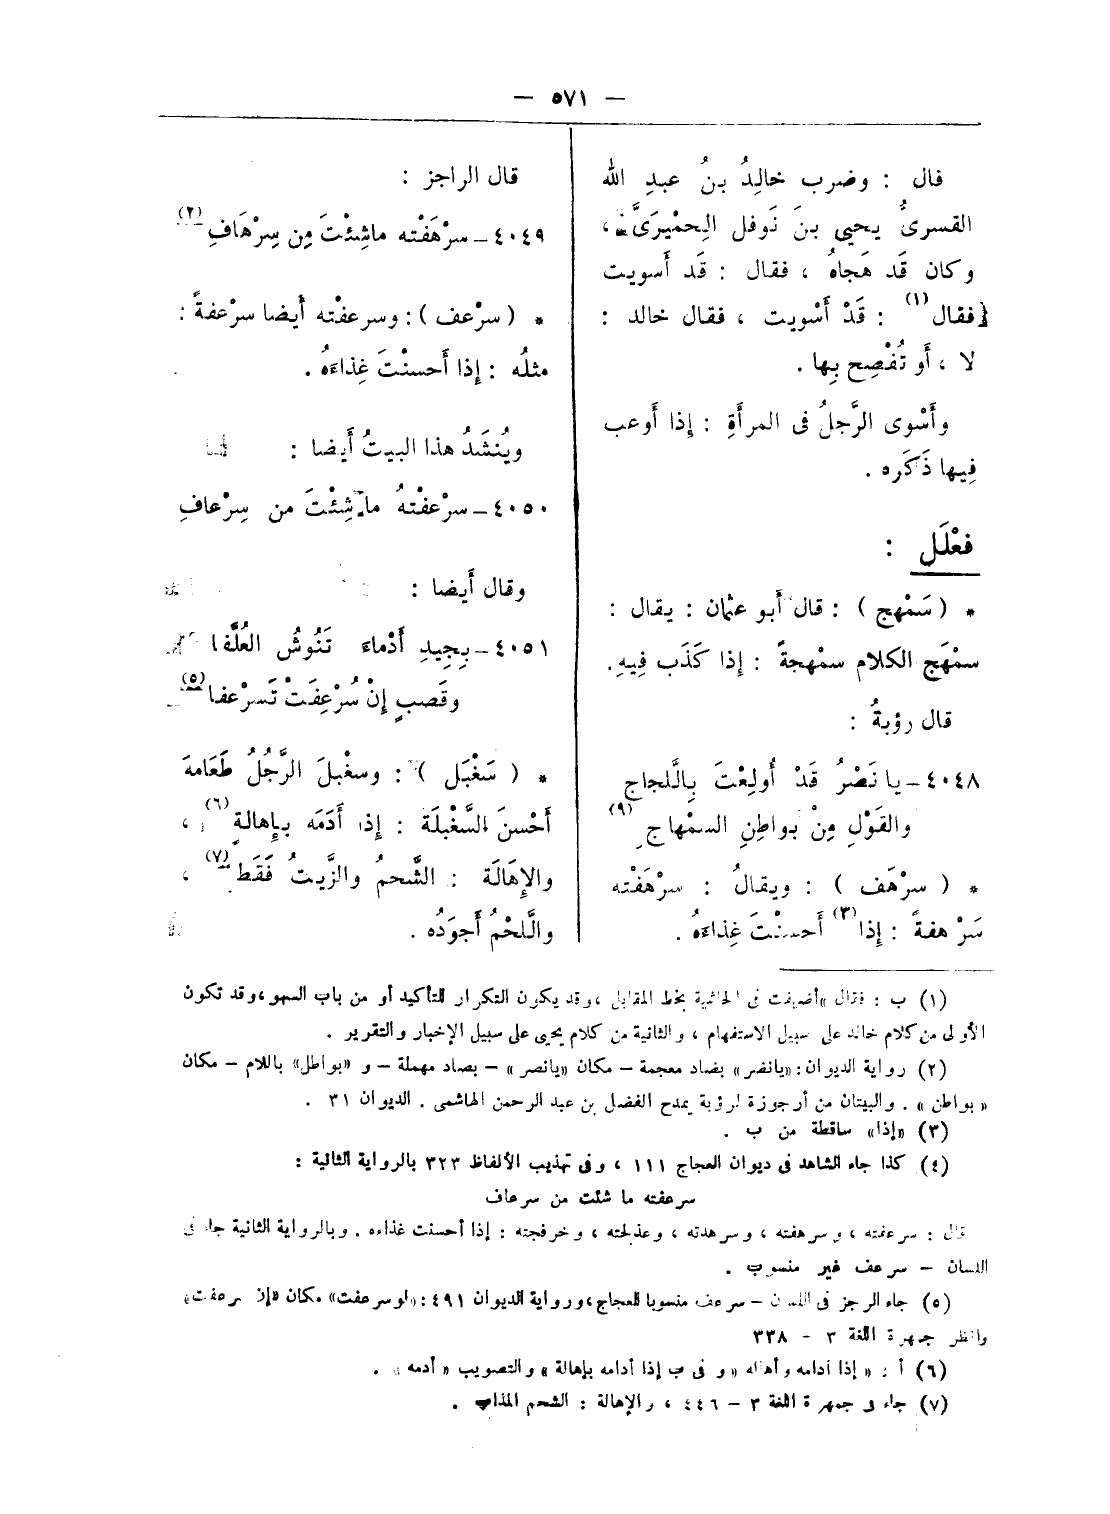 — ٥٧١ —
قال : وضرب خالِدُ بنُ عبدِ الله
القسرىُّ يحيى بنَ نَوفل الحِمْيرَىَّ ،
وكان قَد هَجاهُ ، فقال : قَد أَسويت
[فقال(١) : قَدْ أَسْويت ، فقال خالد :
لا ، أَو تُفْصِح بِها .
وأَسْوى الرَّجلُ فى المرأَةِ : إِذا أَوعب
فِيها ذَكَره .
فَعْلَل :
* ( سَمْهج ) : قال أَبو عثمان : يقال :
سمْهَج الكلام سمْهجةً : إِذا كَذَب فِيهِ.
قال رؤبةُ :
٤٠٤٨ـ يا نَصْرُ قَدْ أُولِعْتَ بِالَّلجاج
والقَوْلِ مِنْ بواطِنِ السمْهاج (٩)
* ( سرْهَف ) : ويقالُ : سرْهَفْته
سَرْهفةً : إِذا(٣) أَحسنْتَ غِذاءَهُ .
قال الراجز :
٤٠٤٩ـ سرْهَفْته ماشِئْتَ مِن سِرْهَافِ(٢)
* ( سرْعف ) : وسرعفْته أَيضا سرْعفةً :
مثلُه : إِذا أَحسنْتَ غِذاءَهُ .
ويُنشَدُ هذا البيتُ أَيضا :
٤٠٥٠ـ سرْعفْتهُ ماشِئْتَ من سِرْعافِ
وقال أَيضا :
٤٠٥١ـ بِجِيدِ أَدْماءَ تَنُوشُ العُلَّفا
وقَصبٍ إِنْ سُرْعِفَتْ تَسرْعفا(٥)
* ( سَغْبَل ) : وسغْبلَ الرَّجُلُ طَعَامهَ
أَحْسنَ السَّغْبلَة : إِذا أَدَمَه بإِهالةٍ(٦) ،
والإِهَالَة : الشَّحمُ والزَّيتُ فَقَط(٧) ،
والَّلحْمُ أَجوَدُه .
(١) ب : فقال «أضيفت فى الحاشية بخط المقابل ،وقد يكون التكرار للتأكيد أو من باب السهو ،وقد تكون
الأولى من كلام خالد على سبيل الاستفهام ، والثانية من كلام يحيى على سبيل الإخبار والتقرير .
(٢) رواية الديوان : «يانضر» بضاد معجمة – مكان «يانصر» – بصاد مهملة – و «بواطل» باللام – مكان
«بواطن» . والبيتان من أرجوزة لرؤبة يمدح الفضل بن عبد الرحمن الهاشمى . الديوان ٣١ .
(٣) «إذا» ساقطة من ب .
(٤) كذا جاء الشاهد فى ديوان العجاج ١١١ ، وفى تهذيب الألفاظ ٣٢٣ بالرواية الثالية :
سرعفته ما شئت من سرعاف
قال : سرعفته ، وسرهفته ، وسرهدته ، وعذلجته ، وخرفجته : إذا أحسنت غذاءه . وبالرواية الثانية جاء فى
اللسان – سرعف غير منسوب .
(٥) جاء الرجز فى اللسان – سرعف منسوبا للعجاج ،ورواية الديوان ٤٩١ : «لو سرعفت» مكان «إن سرعفت»
وانظر جمهرة اللغة ٣ – ٣٣٨
(٦) أ : « إذا أدامه وأهاله » و فى ب إذا أدامه بإهالة » والتصويب « أدمه » .
(٧) جاء فى جمهرة اللغة ٣ – ٤٤٦ ، والإهالة : الشحم المذاب .